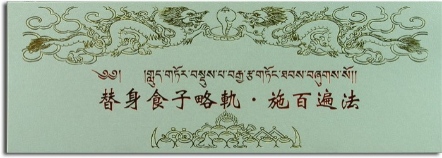 ༄༅། །གླུད་གཏོར་བསྡུས་པ་བརྒྱ་རྩ་གཏོང་ཐབས་བཞུགས་སོ།།
替身食子略軌·施百遍法